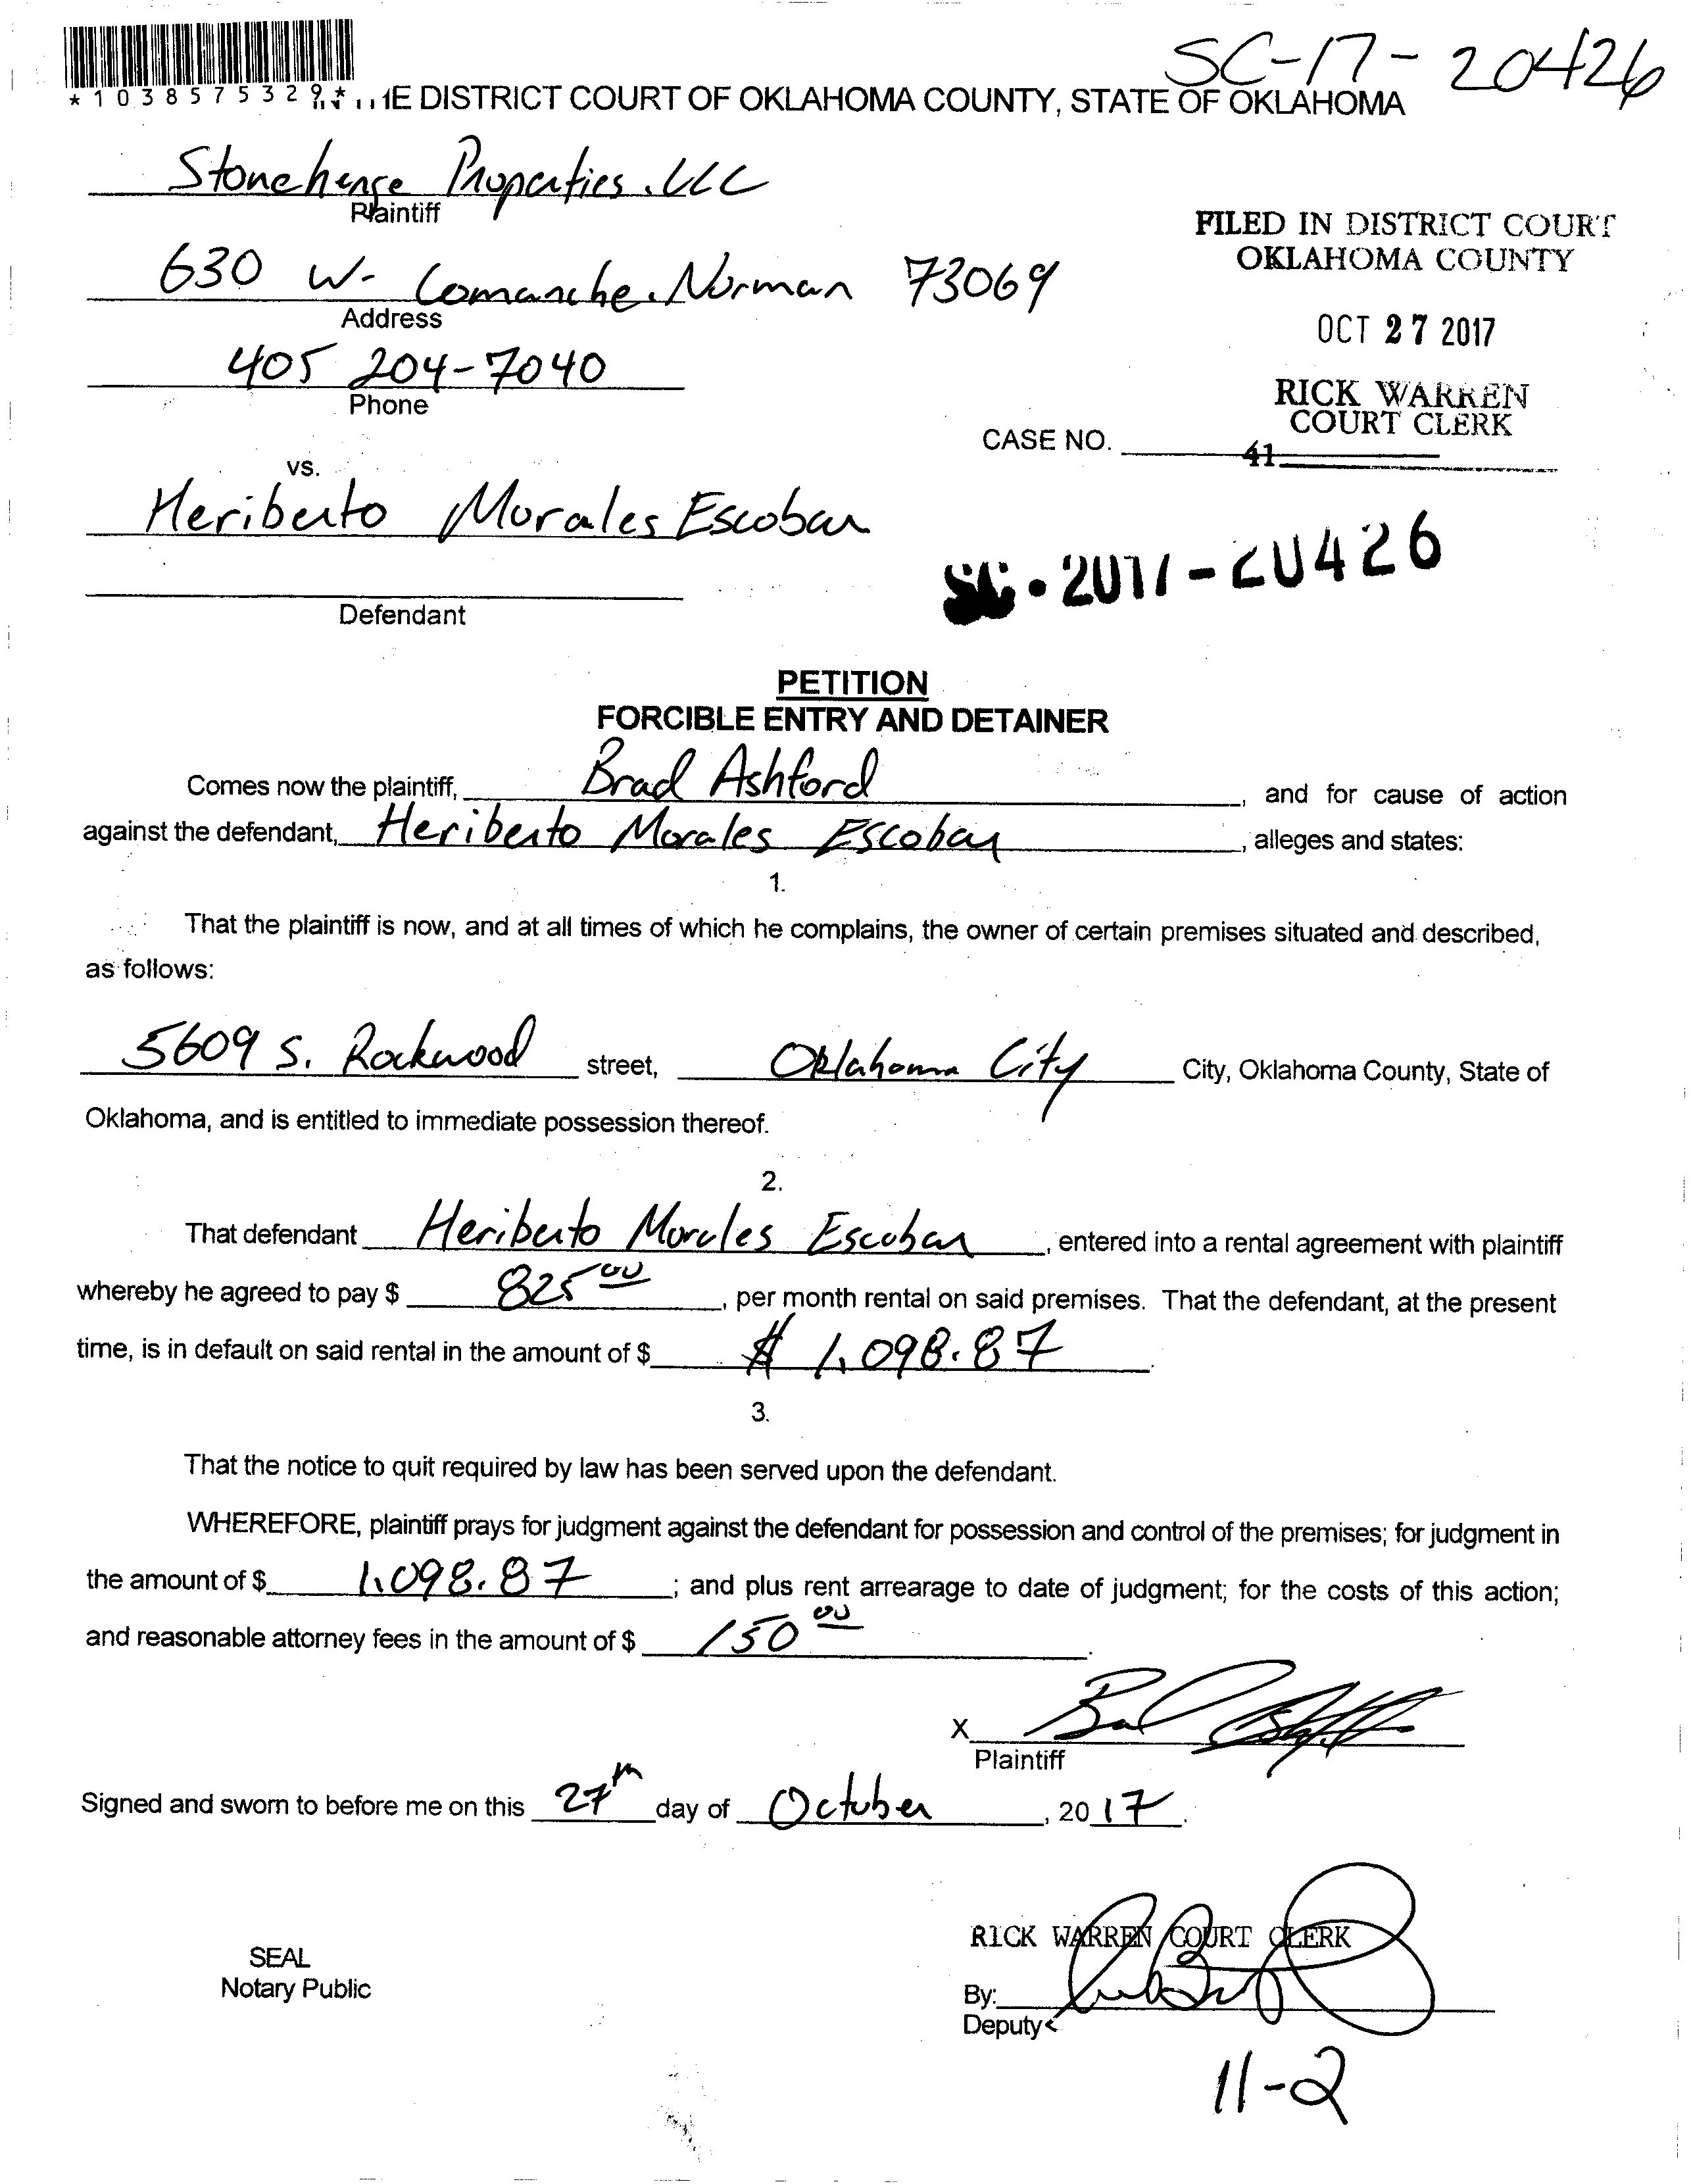 SC-17-20426
*1038575329*
DISTRICT COURT OF OKLAHOMA COUNTY, STATE OF OKLAHOMA
Stonehenge Properties, LLC
Plaintiff
630 W. Comanche, Norman 73069
Address
405 204-7040
Phone
FILED IN DISTRICT COURT
OKLAHOMA COUNTY
OCT 27 2017
RICK WARREN
COURT CLERK
CASE NO.
41
vs.
Heriberto Morales Escobar
Defendant
SC-2017-20426
PETITION
FORCIBLE ENTRY AND DETAINER
Comes now the plaintiff, Brad Ashford, and for cause of action
against the defendant, Heriberto Morales Escobar, alleges and states:
1.
That the plaintiff is now, and at all times of which he complains, the owner of certain premises situated and described,
as follows:
5609 S. Rockwood street, Oklahoma City City, Oklahoma County, State of
Oklahoma, and is entitled to immediate possession thereof.
2.
That defendant Heriberto Morales Escobar, entered into a rental agreement with plaintiff
whereby he agreed to pay $ 825 00, per month rental on said premises. That the defendant, at the present
time, is in default on said rental in the amount of $ $ 1,098.87.
3.
That the notice to quit required by law has been served upon the defendant.
WHEREFORE, plaintiff prays for judgment against the defendant for possession and control of the premises; for judgment in
the amount of $ 1,098.87; and plus rent arrearage to date of judgment; for the costs of this action;
and reasonable attorney fees in the amount of $ 150 00.
X Brad Ashford
Plaintiff
Signed and sworn to before me on this 27th day of October, 2017.
RICK WARREN COURT CLERK
SEAL
Notary Public
By:
Deputy
11-2